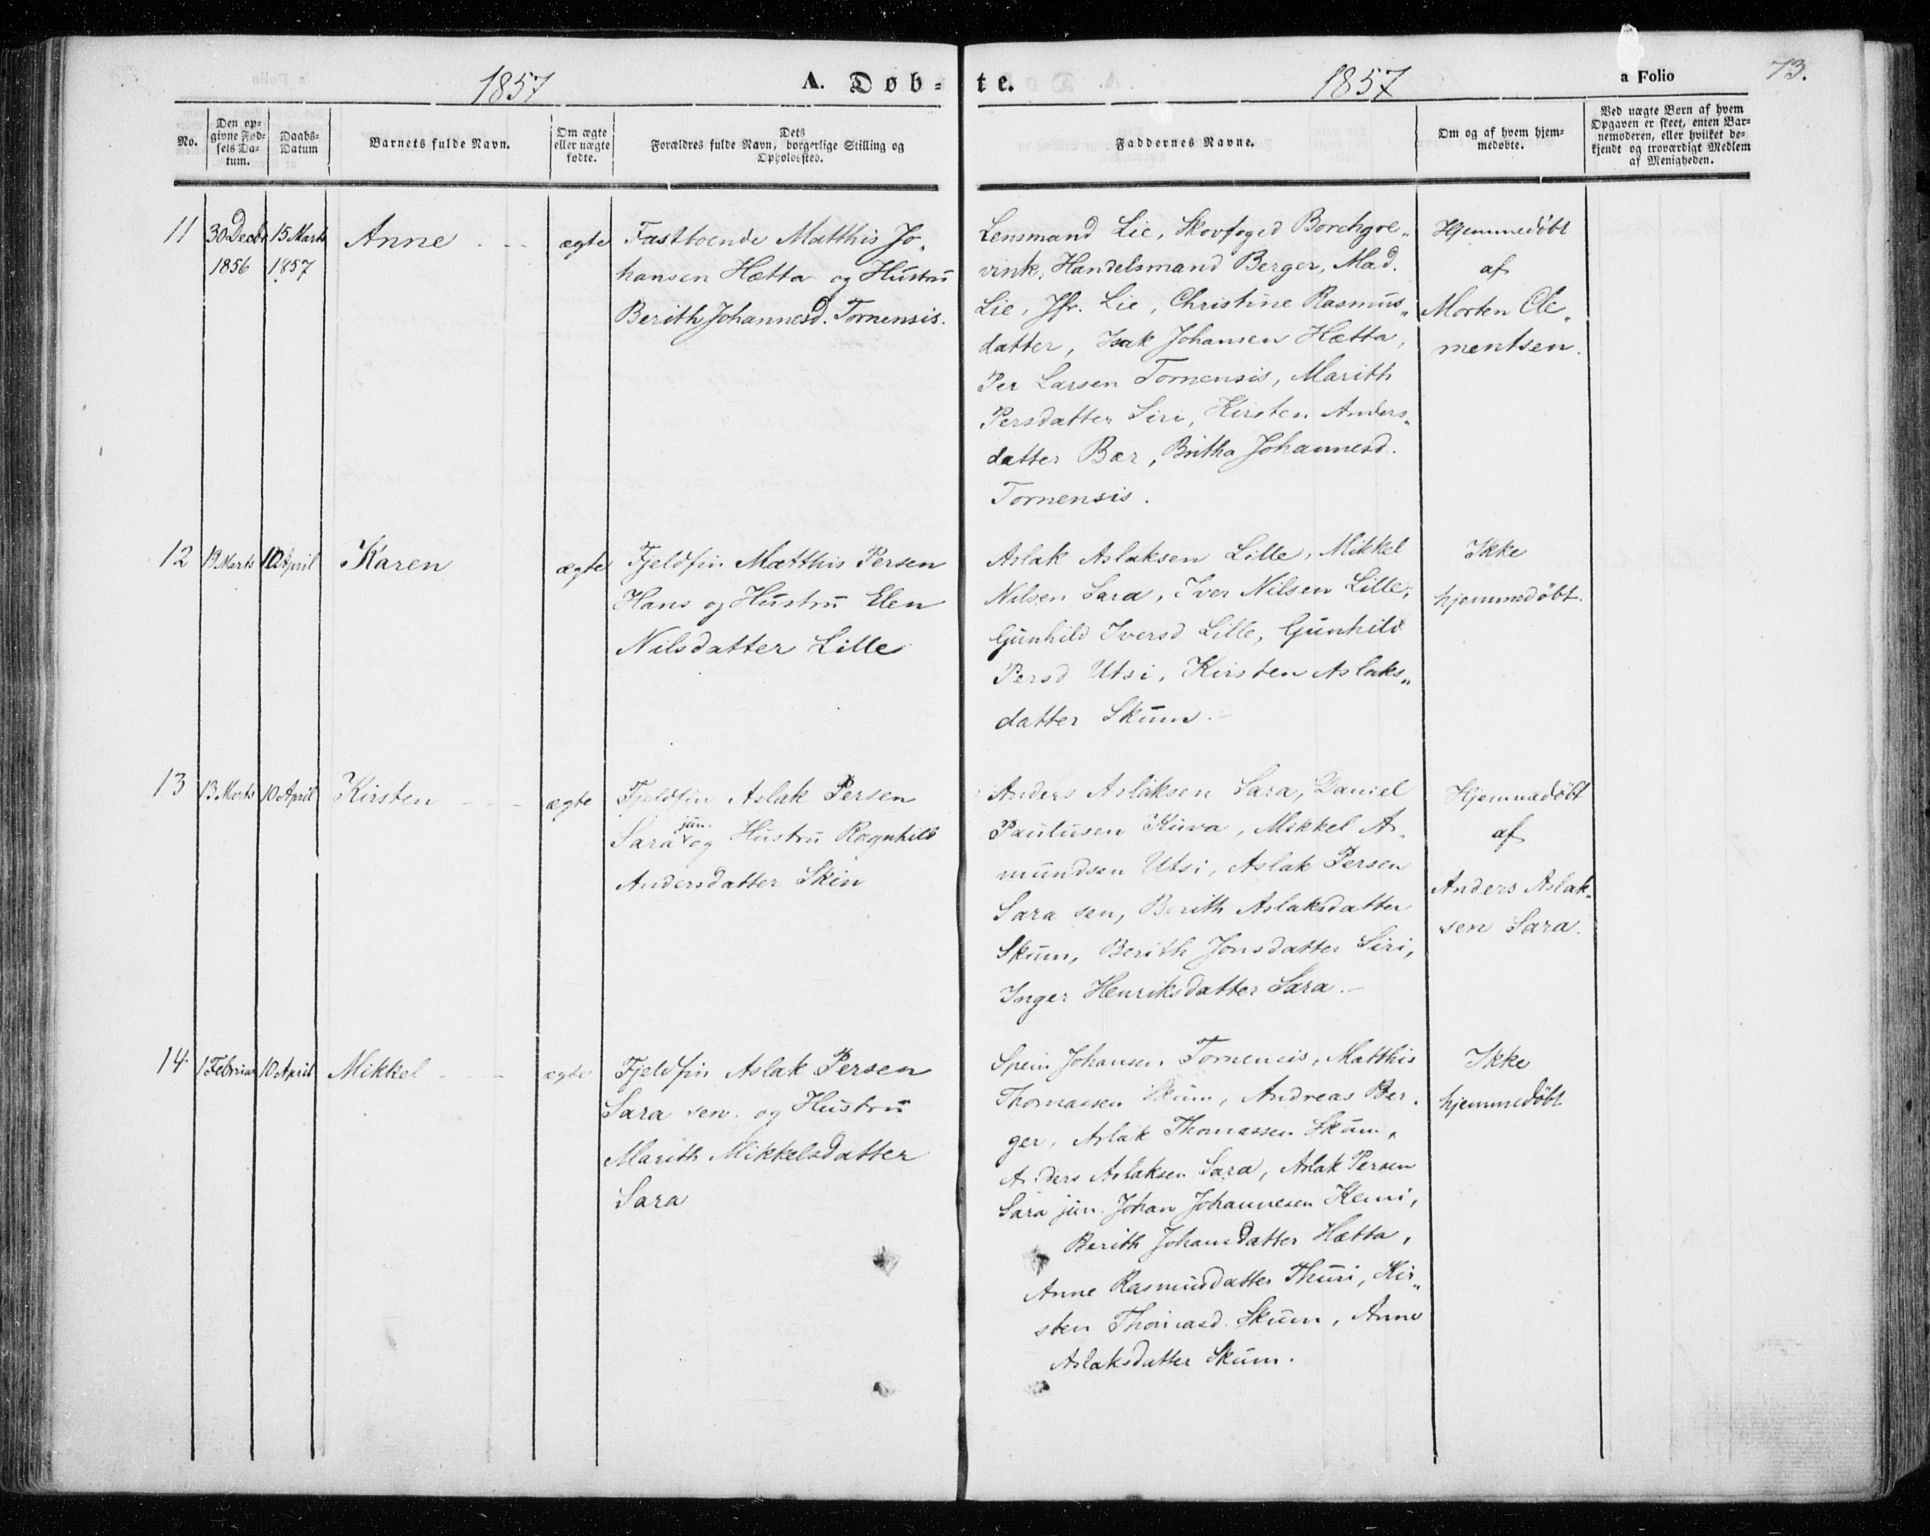 1857 A. Døb- te. 1857 a Folio 73.
No.
Den opgivne Fødsels Datum.
Daabs-Datum
Barnets fulde Navn.
Om ægte eller uægte fødte.
Dets Forældres fulde Navn, borgerlige Stilling og Opholdssted.
Faddernes Navne.
Om og af hvem hjemmedøbte.
Ved uægte Børn af hvem Opgaven er skeet, enten Barnemoderen, eller hvilket bekjendt og troværdigt Medlem af Menigheden.
11
30 Decbr
1856
15 Marts
1857
Anne
ægte
Fastboende Matthis Jo-
hansen Hætta og Hustru
Berith Johannesd. Tornensis.
Lensmand Lie, Skovfoged Borchgre-
vink, Handelsmand Berger, Mad.
Lie, Jfr. Lie, Christine Rasmus-
datter, Isak Johansen Hætta,
Per Larsen Tornensis, Marith
Persdatter Siri, Kirsten Anders-
datter Bær, Britha Johannesd.
Tornensis.
Hjemmedøbt
af
Morten Cle-
mentsen.
12
Marts
10 April
Karen
ægte
Fjeldfin Matthis Persen
Hans og Hustru Elen
Nilsdatter Lille
Aslak Aslaksen Lille, Mikkel
Nilsen Sara, Iver Nilsen Lille,
Gunhild Iversd Lille, Gunhild
Persd Utsi, Kirsten Aslaks-
datter Skum.
Ikke
hjemmedøbt.
13
13 Marts
10 April
Kirsten
ægte
Fjeldfin Aslak Persen
Sara jun. og Hustru Ragnhild
Andersdatter Skin
Anders Aslaksen Sara, Daniel
Paulusen Kuva, Mikkel A-
mundsen Utsi, Aslak Persen
Sara sen, Berith Aslaksdatter
Skum, Berith Jonsdatter Siri,
Inger Henriksdatter Sara.
Hjemmedøbt
af
Anders Aslak-
sen Sara.
14
1 Februar
10 April
Mikkel
ægte
Fjeldfin Aslak Persen
Sara sen. og Hustru
Marith Mikkelsdatter
Sara
Spein Johansen Tornensis, Matthis
Thomassen Skum, Andreas Ber-
ger, Aslak Thomassen Skum,
Anders Aslaksen Sara, Aslak Persen
Sara jun. Johan Johannesen Kemi,
Berith Johansdatter Hætta,
Anne Rasmusdatter Thuri, Kir-
sten Thomasd. Skum, Anne
Aslaksdatter Skum.
Ikke
hjemmedøbt